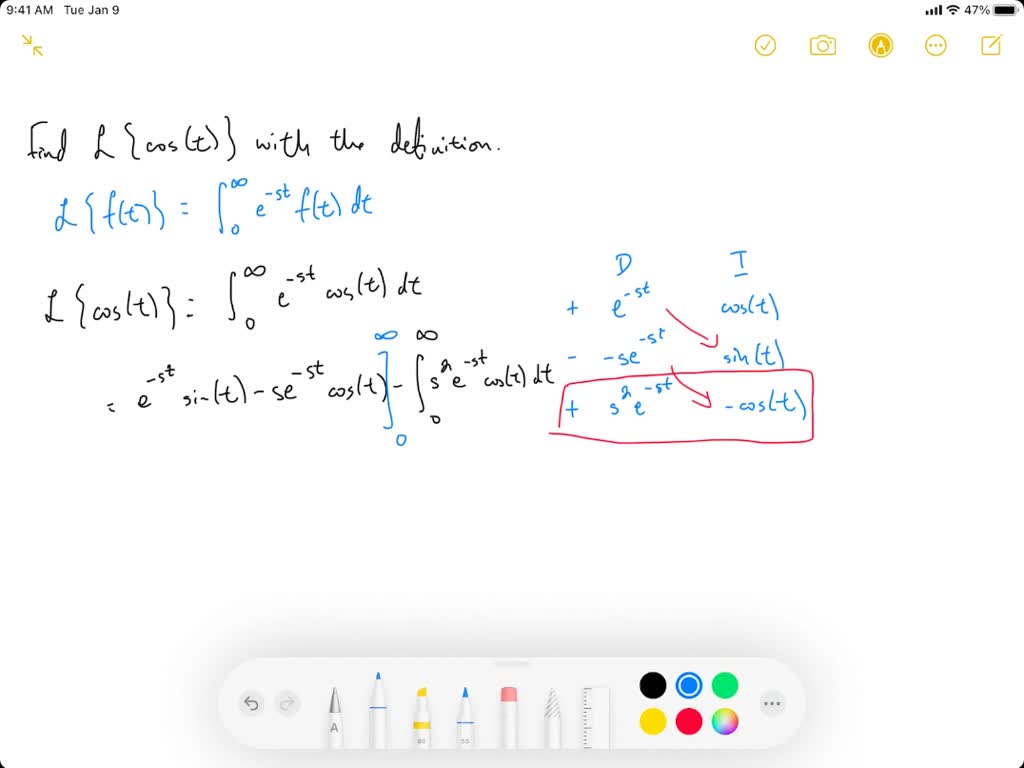 9:41 AM Tue Jan 9 47%
Find ℒ{cos(t)} with the definition.
ℒ{f(t)} = ∫₀^∞ e^{-st} f(t) dt
ℒ{cos(t)} = ∫₀^∞ e^{-st} cos(t) dt
= e^{-st} sin(t) - se^{-st} cos(t)]₀^∞ - ∫₀^∞ s²e^{-st} cos(t) dt
D I
+ e^{-st} cos(t)
- -se^{-st} sin(t)
+ s²e^{-st} -cos(t)
A 80 50